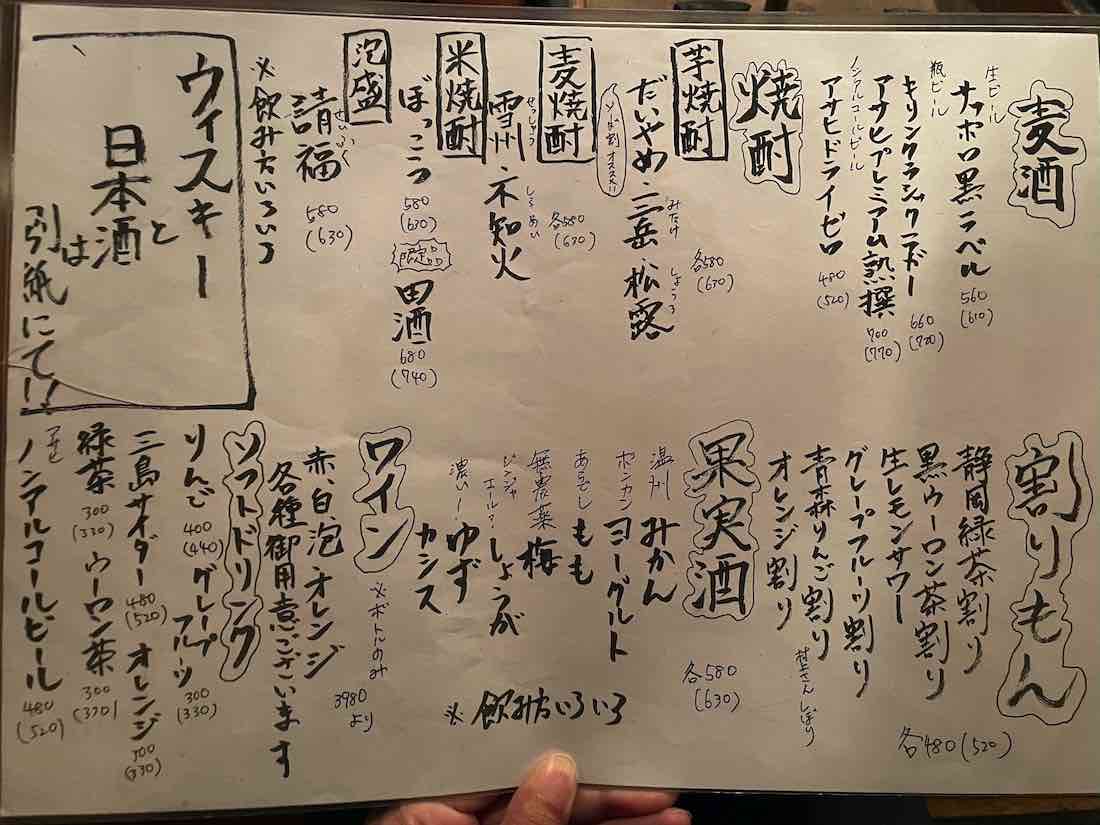 麦酒
生ビール
サッポロ黒ラベル
560
(610)
瓶ビール
キリンクラシックラガー
660
(720)
アサヒプレミアム熟撰
700
(770)
ノンアルコールビール
アサヒドライゼロ
480
(520)
焼酎
芋焼酎
だいやめ・三岳・松露
みたけ
しょうろ
各580
(630)
ソーダ割オススメ!!
麦焼酎
各580
(630)
雪州・不知火
せっしゅう
しらぬい
米焼酎
ぼっこつ
580
(630)
限定品
田酒
680
(740)
泡盛
請福
せいふく
580
(630)
※飲み方いろいろ
ウィスキー
と
日本酒
は
別紙にて!!
割りもん
静岡緑茶割り
黒ウーロン茶割り
生レモンサワー
グレープフルーツ割り
青森りんご割り
村上さんしぼり
オレンジ割り
各480(520)
果実酒
各580
(630)
温州みかん
ポンカンヨーグルト
あらごしもも
無農薬梅
ジンジャエール?しょうが
濃いー!ゆず
カシス
※飲み方いろいろ
ワイン
※ボトルのみ
赤、白、泡、オレンジ
3980
より
各種御用意ございます
ソフトドリンク
りんご
400
(440)
グレープフルーツ
300
(330)
三島サイダー
480
(520)
オレンジ
300
(330)
緑茶
300
(330)
ウーロン茶
300
(330)
ノンアルコールビール
480
(520)